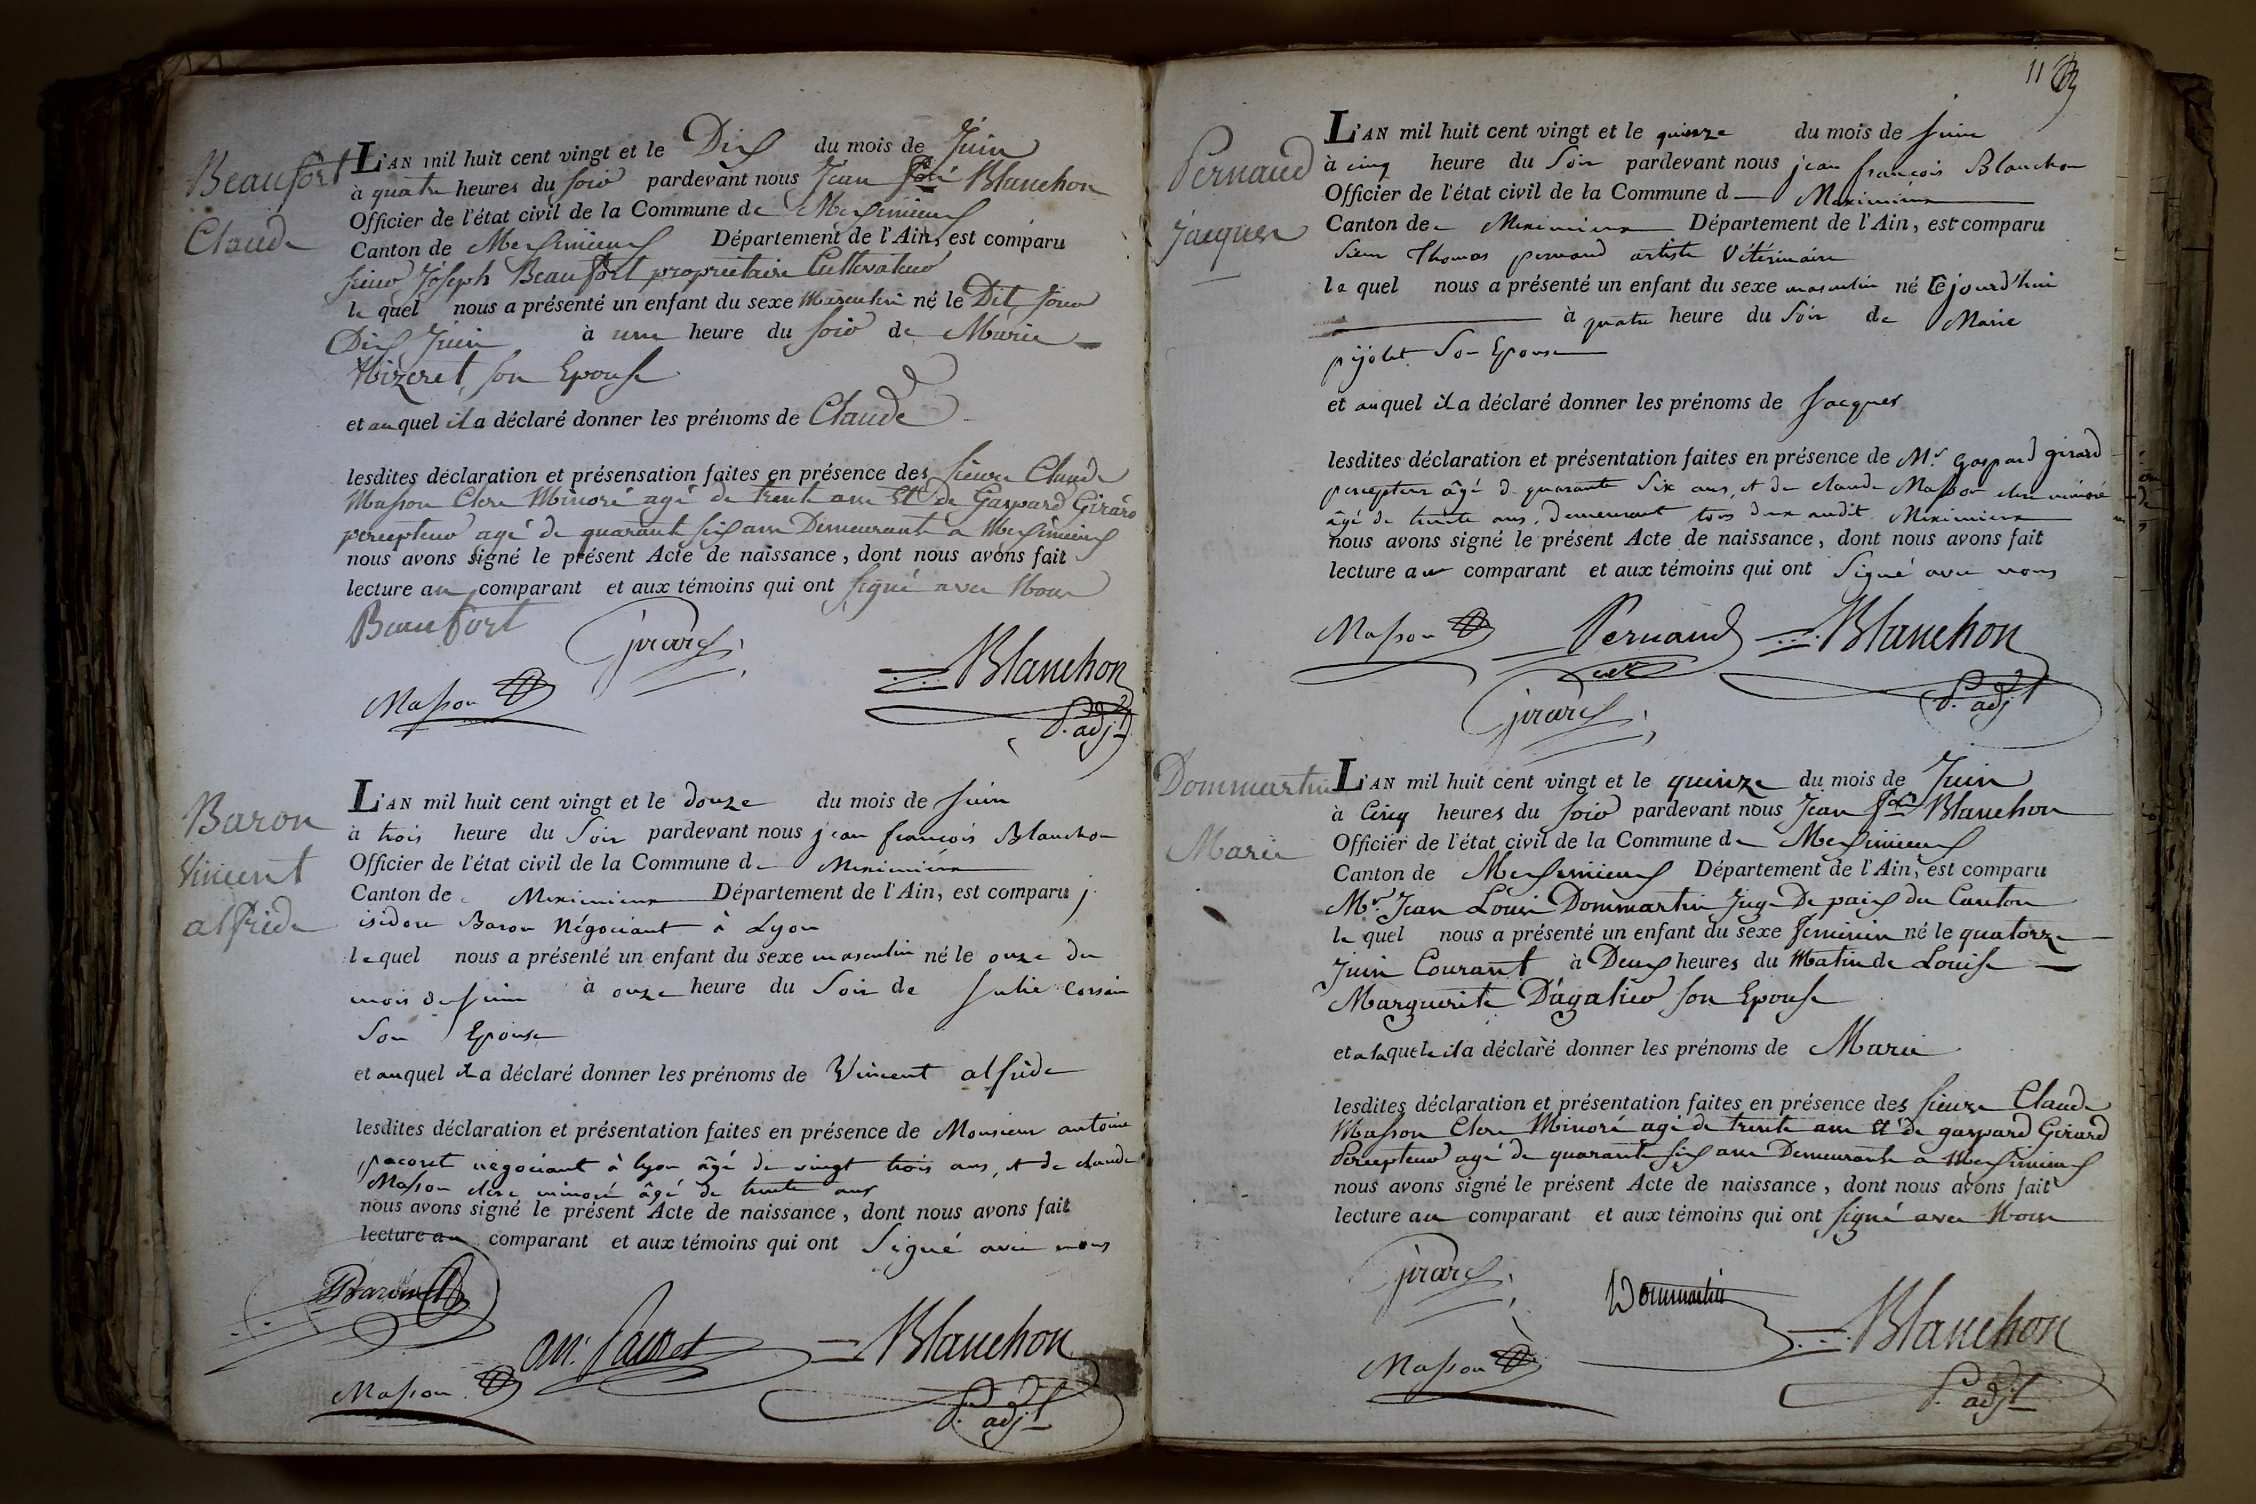 Beaufort
Claude
L'AN mil huit cent vingt et le Dix du mois de Juin
à quatre heures du soir pardevant nous Jean Blanchon
Officier de l'état civil de la Commune de Meximieux
Canton de Meximieux Département de l'Ain, est comparu
sieur Joseph Beaufort propriétaire Cultivateur
le quel nous a présenté un enfant du sexe Masculin né le Dit Jour
Dix Juin à une heure du soir de Marie
son Epouse
et auquel il a déclaré donner les prénoms de Claude
lesdites déclaration et présensation faites en présence des sieurs Claude
Masson Clerc Minoré agé de trente ans Et de Gaspard Girard
percepteur agé de quarante six ans Demeurant a Meximieux
nous avons signé le présent Acte de naissance, dont nous avons fait
lecture au comparant et aux témoins qui ont signé avec Nous
Beaufort
Girard
Blanchon
Masson
P. adjt
Baron
Vincent
alfride
L'AN mil huit cent vingt et le douze du mois de juin
à trois heure du Soir pardevant nous jean françois Blanchon
Officier de l'état civil de la Commune de Meximieux
Canton de Meximieux Département de l'Ain, est comparu j.
isidore Baron Négociant à Lyon
lequel nous a présenté un enfant du sexe masculin né le onze du
mois de juin à onze heure du Soir de Julie
Son Epouse
et auquel il a déclaré donner les prénoms de Vincent alfride
lesdites déclaration et présentation faites en présence de Monsieur antoine
pacoret négociant à lyon âgé de vingt trois ans, et de claude
Masson clerc minoré âgé de trente ans
nous avons signé le présent Acte de naissance, dont nous avons fait
lecture au comparant et aux témoins qui ont Signé avec nous
Baron
an. Pacoret
Blanchon
Masson
P. adjt
11
Pernaud
jacques
L'AN mil huit cent vingt et le quinze du mois de juin
à cinq heure du Soir pardevant nous jean françois Blanchon
Officier de l'état civil de la Commune d Meximieux
Canton de Meximieux Département de l'Ain, est comparu
Sieur Thomas pernaud artiste Vétérinaire
le quel nous a présenté un enfant du sexe masculin né cejourd'hui
à quatre heure du Soir de Marie
pijolet Son Epouse
et auquel il a déclaré donner les prénoms de Jacques
lesdites déclaration et présentation faites en présence de Mr. Gaspard girard
percepteur âgé d quarante Six ans, et de claude Masson clerc minoré
âgé de trente ans, demeurant tous deux audit Meximieux
nous avons signé le présent Acte de naissance, dont nous avons fait
lecture au comparant et aux témoins qui ont Signé avec nous
Masson
Pernaud
Blanchon
Girard
P. adjt
Dommartin
Marie
L'AN mil huit cent vingt et le quinze du mois de Juin
à Cinq heures du soir pardevant nous Jean Fois Blanchon
Officier de l'état civil de la Commune de Meximieux
Canton de Meximieux Département de l'Ain, est comparu
Mr. Jean Louis Dommartin Juge De paix du Canton
le quel nous a présenté un enfant du sexe feminin né le quatorze
Juin Courant à Deux heures du Matin de Louise
Marguerite Dagalier son Epouse
et a laquele il a déclaré donner les prénoms de Marie
lesdites déclaration et présentation faites en présence des sieurs Claude
Masson Clerc Minoré agé de trente ans Et de gaspard Girard
Percepteur agé de quarante six ans Demeurants a Meximieux
nous avons signé le présent Acte de naissance, dont nous avons fait
lecture au comparant et aux témoins qui ont signé avec Nous
Girard
Dommartin
Blanchon
Masson
P. adjt